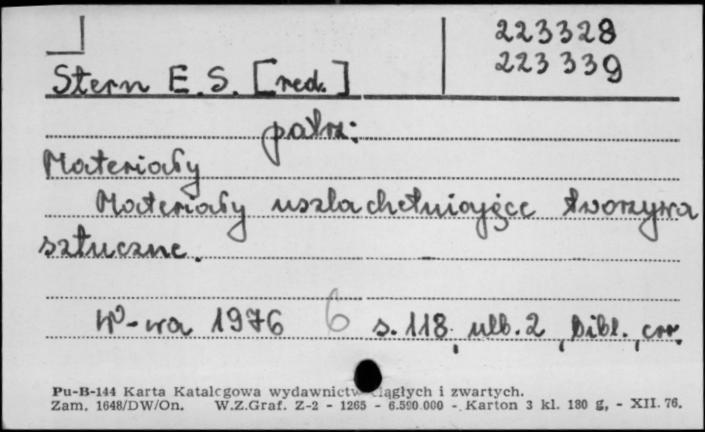 223328
223339
Stern E. S. [red.]
patrz:
Materiały
Materiały uszlachetniające tworzywa
sztuczne.
W-wa 1976 6 s. 118, ulb. 2, bibl.,
Pu-B-144 Karta Katalogowa wydawnictw ciągłych i zwartych.
Zam. 1648/DW/On. W.Z.Graf. Z-2 - 1265 - 6.590.000 - Karton 3 kl. 180 g, - XII. 76.